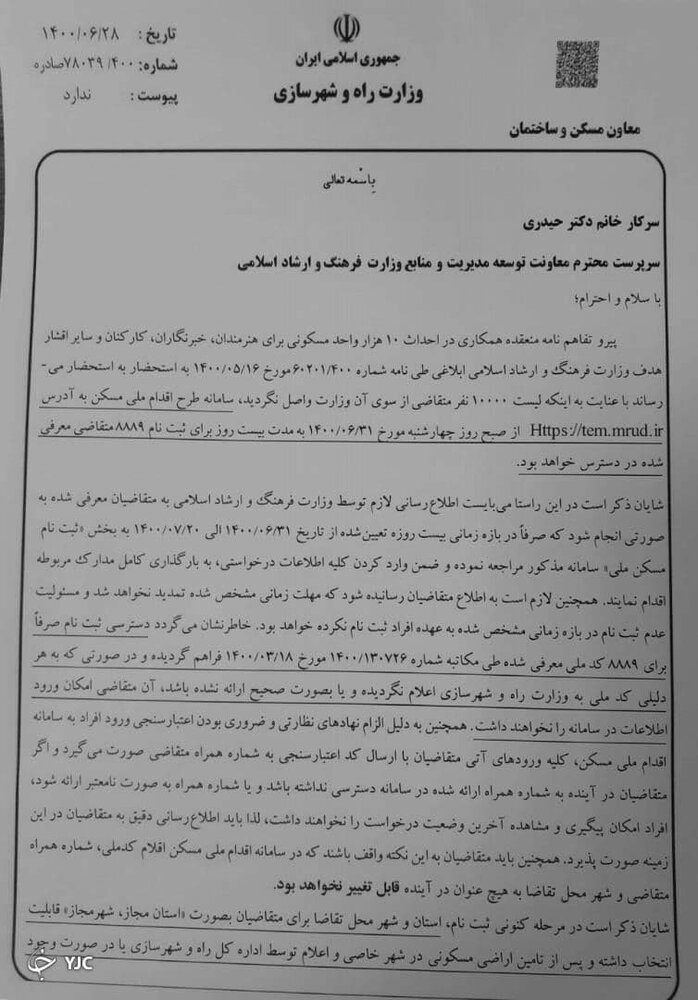 جمهوری اسلامی ایران
وزارت راه و شهرسازی
تاریخ : ۱۴۰۰/۰۶/۲۸
شماره: ۷۸۰۳۹/۴۰۰صادره
پیوست : ندارد
معاون مسکن و ساختمان
باسمه تعالی
سرکار خانم دکتر حیدری
سرپرست محترم معاونت توسعه مدیریت و منابع وزارت فرهنگ و ارشاد اسلامی
با سلام و احترام؛
پیرو تفاهم نامه منعقده همکاری در احداث ۱۰ هزار واحد مسکونی برای هنرمندان، خبرنگاران، کارکنان و سایر اقشار
هدف وزارت فرهنگ و ارشاد اسلامی ابلاغی طی نامه شماره ۶۰۲۰۱/۴۰۰مورخ ۱۴۰۰/۰۵/۱۶ به استحضار به استحضار می-
رساند با عنایت به اینکه لیست ۱۰۰۰۰ نفر متقاضی از سوی آن وزارت واصل نگردید، سامانه طرح اقدام ملی مسکن به آدرس
Https://tem.mrud.ir از صبح روز چهارشنبه مورخ ۱۴۰۰/۰۶/۳۱ به مدت بیست روز برای ثبت نام ۸۸۸۹ متقاضی معرفی
شده در دسترس خواهد بود.
شایان ذکر است در این راستا می‌بایست اطلاع‌رسانی لازم توسط وزارت فرهنگ و ارشاد اسلامی به متقاضیان معرفی شده به
صورتی انجام شود که صرفاً در بازه زمانی بیست روزه تعیین‌شده از تاریخ ۱۴۰۰/۰۶/۳۱ الی ۱۴۰۰/۰۷/۲۰ به بخش «ثبت نام
مسکن ملی» سامانه مذکور مراجعه نموده و ضمن وارد کردن کلیه اطلاعات درخواستی، به بارگذاری کامل مدارک مربوطه
اقدام نمایند. همچنین لازم است به اطلاع متقاضیان رسانیده شود که مهلت زمانی مشخص شده تمدید نخواهد شد و مسئولیت
عدم ثبت نام در بازه زمانی مشخص شده به عهده افراد ثبت نام نکرده خواهد بود. خاطرنشان می‌گردد دسترسی ثبت نام صرفاً
برای ۸۸۸۹ کد ملی معرفی شده طی مکاتبه شماره ۱۴۰۰/۱۳۰۷۲۶ مورخ ۱۴۰۰/۰۳/۱۸ فراهم گردیده و در صورتی که به هر
دلیلی کد ملی به وزارت راه و شهرسازی اعلام نگردیده و یا بصورت صحیح ارائه نشده باشد، آن متقاضی امکان ورود
اطلاعات در سامانه را نخواهند داشت. همچنین به دلیل الزام نهادهای نظارتی و ضروری بودن اعتبارسنجی ورود افراد به سامانه
اقدام ملی مسکن، کلیه ورودهای آتی متقاضیان با ارسال کد اعتبارسنجی به شماره همراه متقاضی صورت می‌گیرد و اگر
متقاضیان در آینده به شماره همراه ارائه شده در سامانه دسترسی نداشته باشد و یا شماره همراه به صورت نامعتبر ارائه شود،
افراد امکان پیگیری و مشاهده آخرین وضعیت درخواست را نخواهند داشت، لذا باید اطلاع‌رسانی دقیق به متقاضیان در این
زمینه صورت پذیرد. همچنین باید متقاضیان به این نکته واقف باشند که در سامانه اقدام ملی مسکن اقلام کدملی، شماره همراه
متقاضی و شهر محل تقاضا به هیچ عنوان در آینده قابل تغییر نخواهد بود.
شایان ذکر است در مرحله کنونی ثبت نام، استان و شهر محل تقاضا برای متقاضیان بصورت «استان مجاز، شهرمجاز» قابلیت
انتخاب داشته و پس از تامین اراضی مسکونی در شهر خاصی و اعلام توسط اداره کل راه و شهرسازی یا در صورت وجود
YJC